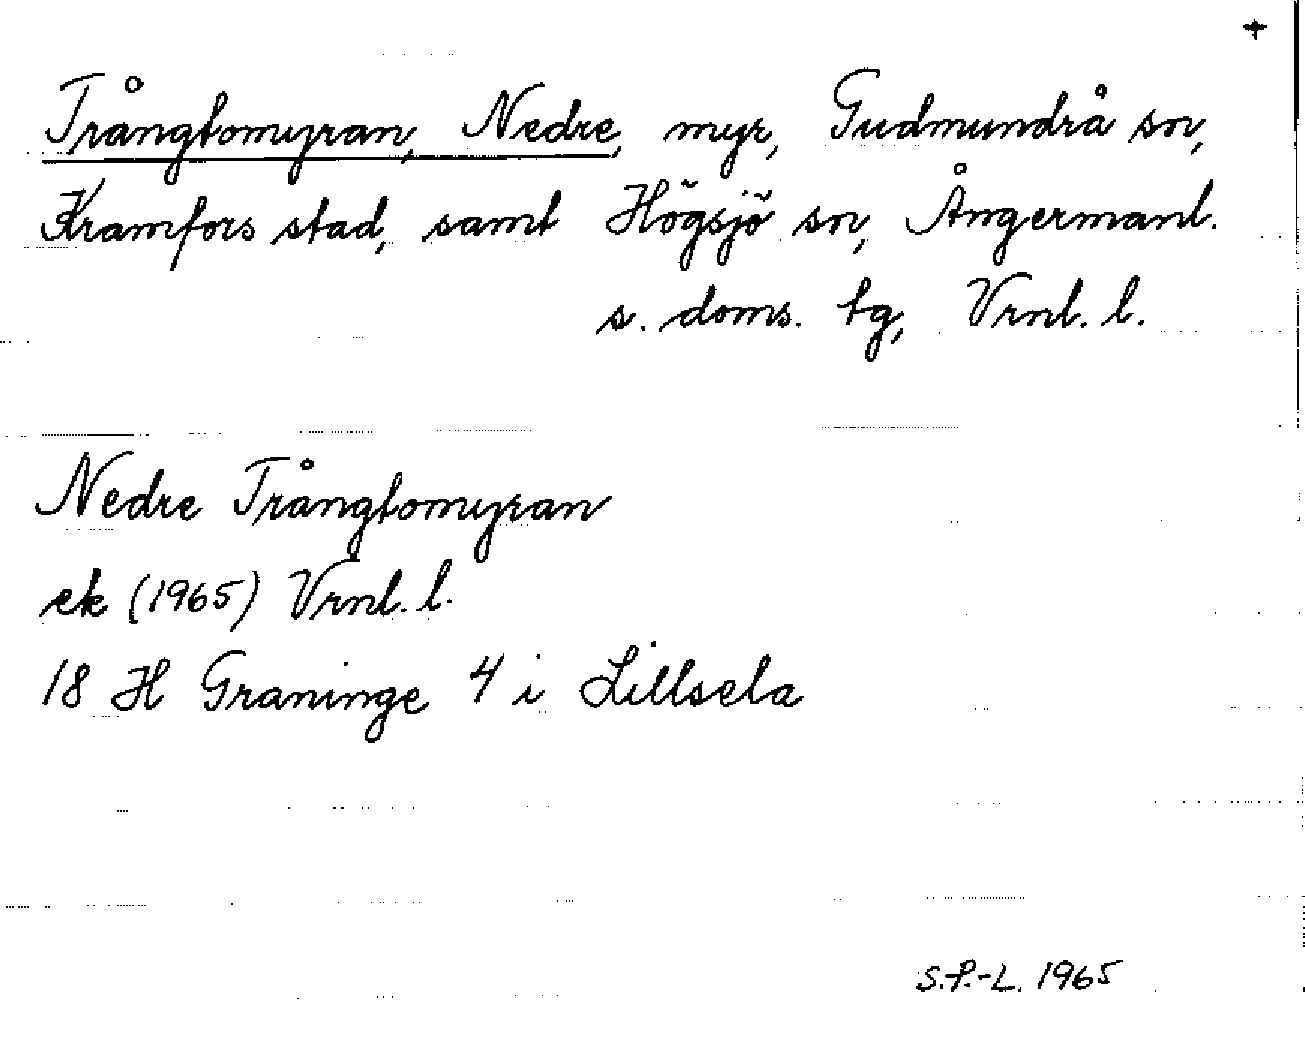 +
Trångtomyran, Nedre, myr, Gudmundrå sn,
Kramfors stad, samt Högsjö sn, Ångermanl.
s. doms. tg, Vrnl. l.
Nedre Trångtomyran
ek (1965) Vrnl. l.
18 H Graninge 4 i Lillsela
S.P.-L. 1965